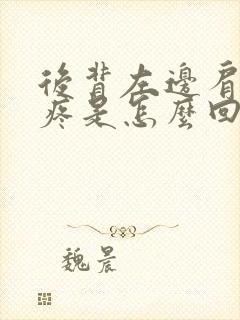 後背左邊肩
疼是怎麼回
魏晨